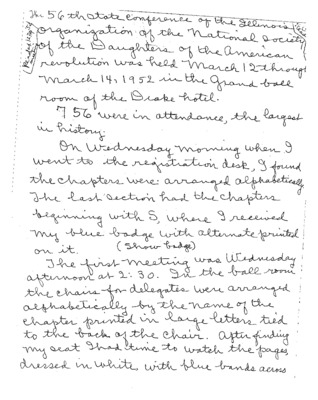 The 56th State Conference of the Illinois
Organization of the National Society
of the Daughters of the American
revolution was held March 12 through
March 14, 1952 in the Grand ball
room of the Drake hotel.
756 were in attendance, the largest
in history.
On Wednesday morning when I
went to the registration desk, I found
the chapters were arranged alphabetically
The last section had the chapters
beginning with S, where I received
my blue badge with alternate printed
on it. (Show badge)
The first meeting was Wednesday
afternoon at 2:30. In the ball room
the chairs for delegates were arranged
alphabetically by the name of the
chapter printed in large letters tied
to the back of the chair. After finding
my seat I had time to watch the pages
dressed in white with blue bands across